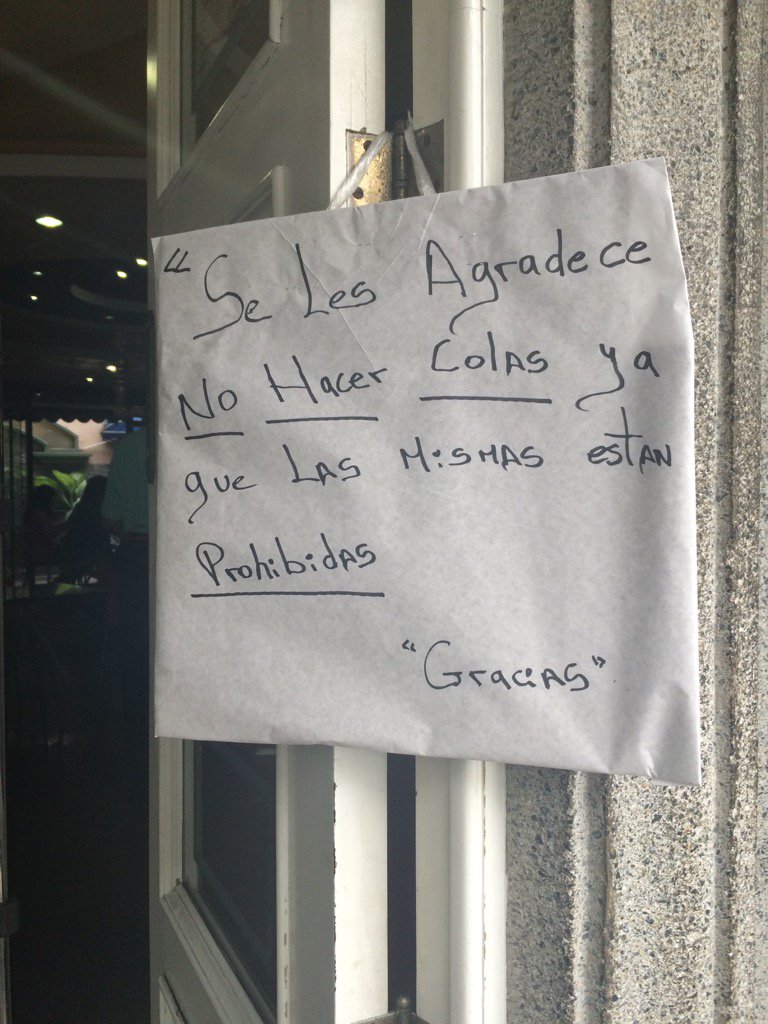 “Se Les Agradece
No Hacer Colas ya
que Las Mismas estan
Prohibidas
“Gracias”